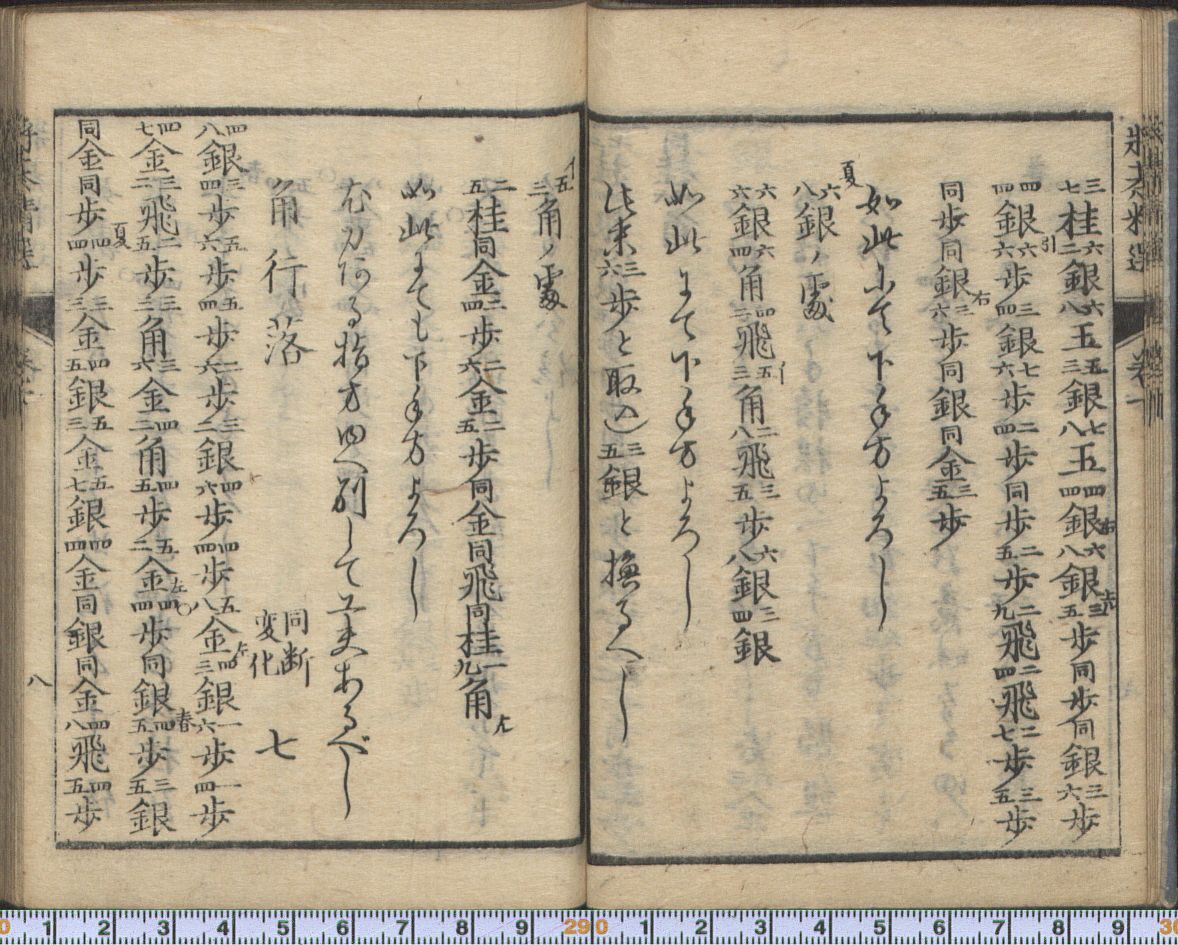 将棊精選　巻一
三七桂六二銀六八玉五三銀七八玉四四銀右六八銀左三五歩同歩同銀三六歩
四四銀引六六歩三四銀七六歩二四歩同歩二五歩二九飛二四飛二七歩三五歩
同歩同銀右三六歩同銀同金三五歩
如此にて下手方よろし
夏
六八銀ノ處
六六銀六四角四三飛五三角イ二八飛三五歩六八銀三四銀
如此にて下手方よろし
此末三六歩と取込三五銀と撫るべし
イ
五三角ノ處
二五桂同金三四歩二六金二五歩同金同飛同桂一九角成
如此にても下手方よろし
尤力ある指方ゆへ別して工夫あるべし
角行落　同断変化　七
四八銀三四歩五六歩五四歩二六歩三二銀四六歩四四歩五八金左四三銀一六歩一四歩
四七金三二飛二五歩三三角三六金四二角四五歩五二金左四四歩同銀春四五歩三五銀
同金同歩夏四四歩三三金四五銀五三金五七銀四四金同銀同金四八飛四五歩
八